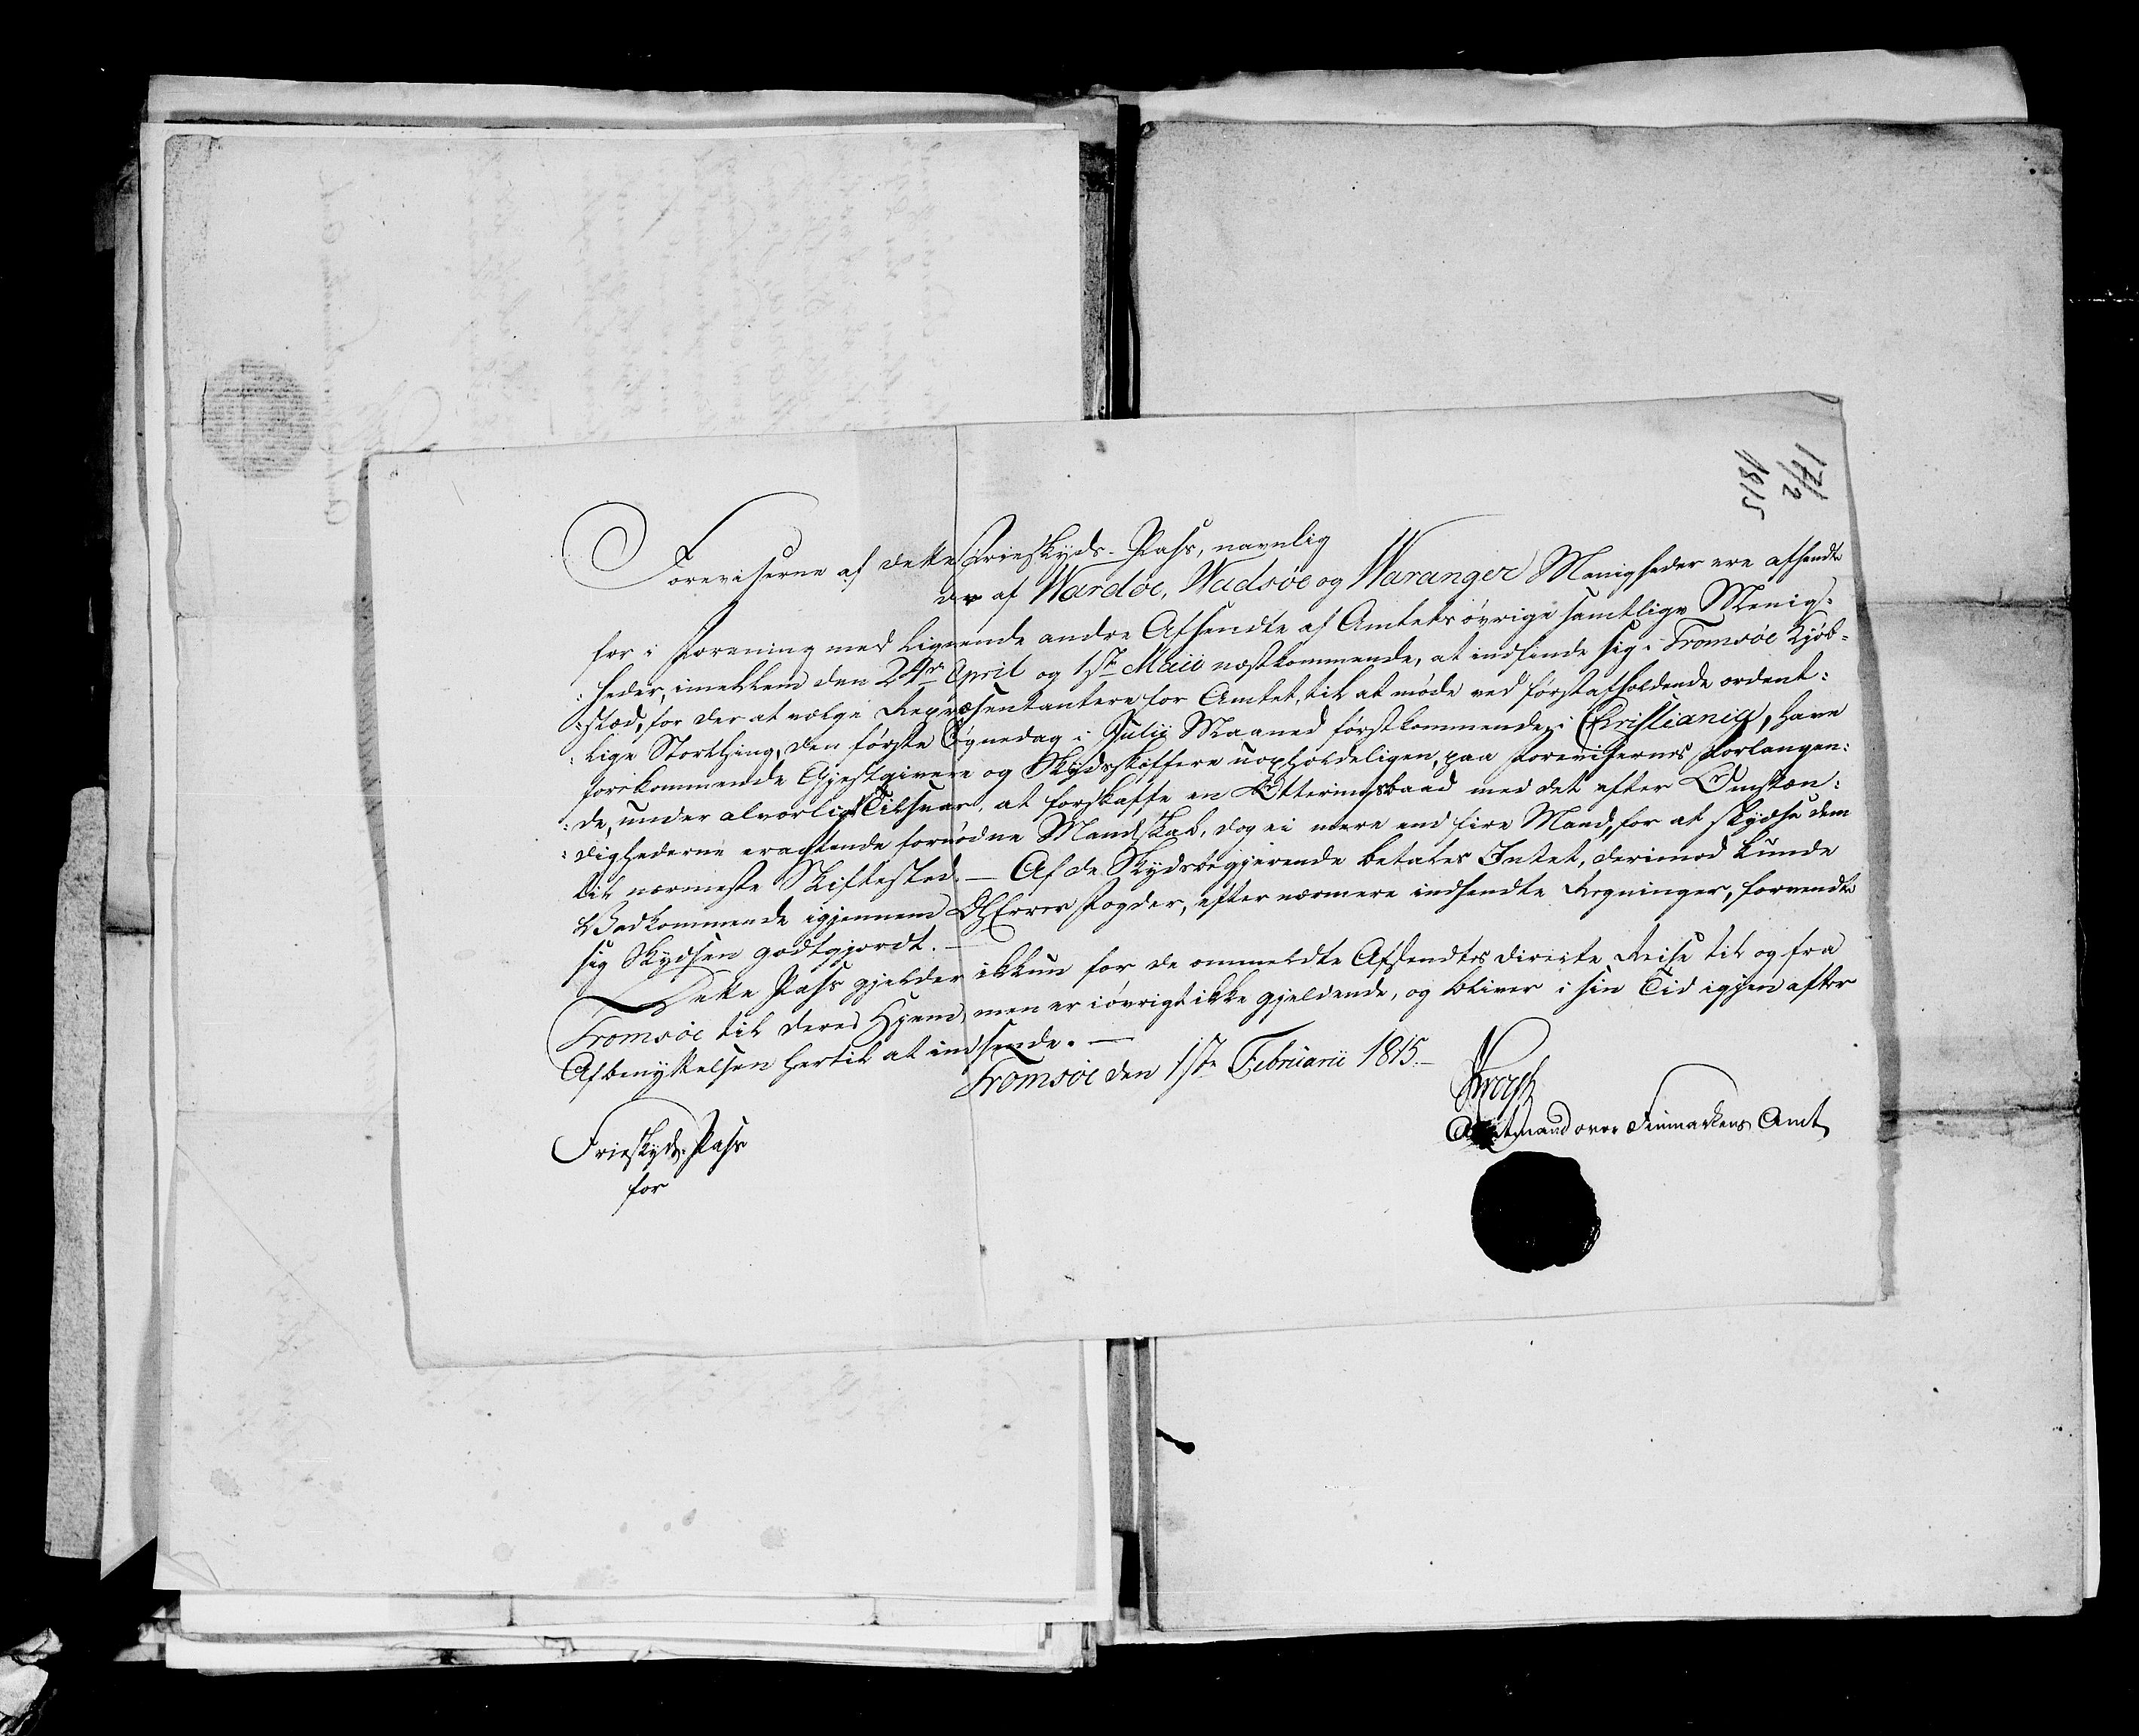 17/2
1815
Foreviserne af dette Frieskyds-Pass, navnlig
der af Wardøe, Wadsøe og Waranger Menigheder ere afsendte
for i Forening med lignende andre Afsendte af Amtets øvrige samtlige Menig:
:heder, imellem den 24de April og 1ste Maii næstkommende, at indfinde sig i Tromsøe Kjøb:
:stæd, for der at vælge Repræsentantere for Amtet, til at møde ved førstafholdende ordent:
:lige Storthing, den første Søgnedag i Julii Maaned førstkommende i Christiania, have
forekommende Gjestgivere og Skydsskaffere uopholdeligen, paa Forevisernes Forlangen:
:de, under alvorligt Tilsvar, at forskaffe en Ottringsbaad med det efter Omstæn:
:dighederne eragtende fornødne Mandskab, dog ei mere end fire Mand, for at skydse dem
til nærmeste Skiftested. — Af de Skydsbegjerende betales Intet, derimod kunde
Vedkommende igjennem DHerrer Fogder, efter nærmere indsendte Regninger, forvendte
sig Skydsen godtgjordt. —
Dette Pass gjelder ikkun for de ommeldte Afsendtes directe Reise til og fra
Tromsøe til deres Hjem, men er iøvrigt ikke gjeldende, og bliver i sin Tid igjen efter
Afbenyttelsen hertil at indsende. —
Tromsøe den 1ste Februarii 1815. —
Krogh
Amtmand over Finmarkens Amt
Frieskyds-Pass
for